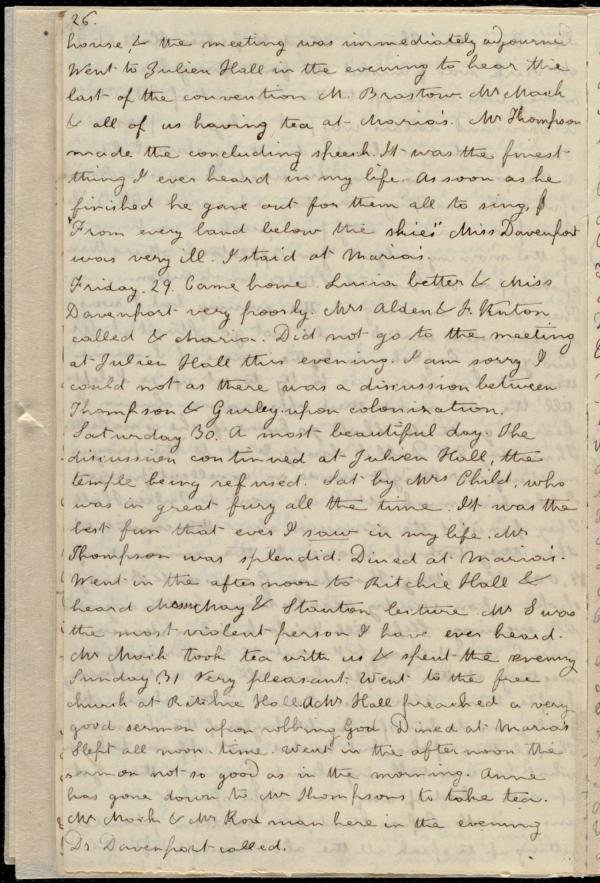 26.
house, & the meeting was immediately adjourni
Went to Julien Hall in the evening to hear the
last of the convention M. Brastow. Mr Mack
& all of us having tea at Maria's. Mr Thompson
made the concluding speech. It was the finest
thing I ever heard in my life. As soon as he
finished he gave out for them all to sing,
"From every land below the skies" Miss Davenport
was very ill. I staid at Maria's.
Friday. 29. Came home. Lucia better & Miss
Davenport very poorly. Mrs Alden & J.
called & Maria. Did not go to the meeting
at Julien Hall this evening. I am sorry I
could not as there was a discussion between
Thompson & Gurley upon colonization.
Saturday 30. A most beautiful day. The
discussion continued at Julien Hall, the
temple being refused. Sat by Mrs Child, who
was in great fury all the time. It was the
best fun that ever I saw in my life. Mr
Thompson was splendid. Dined at Maria's.
Went in the afternoon to Ritchie Hall &
heard May & Stanton lecture Mr S was
the most violent person I have ever heard.
Mr Mack took tea with us & spent the evening
Sunday 31 Very pleasant. Went to the free
church at Ritchie Hall. A Mr Hall preached a very
good sermon upon robbing God. Dined at Maria's
Slept all noon-time. Went in the afternoon the
sermon not so good as in the morning. Anne
has gone down to Mr Thompsons to take tea.
Mr Mack & Mr man here in the evening
Dr Davenport called.